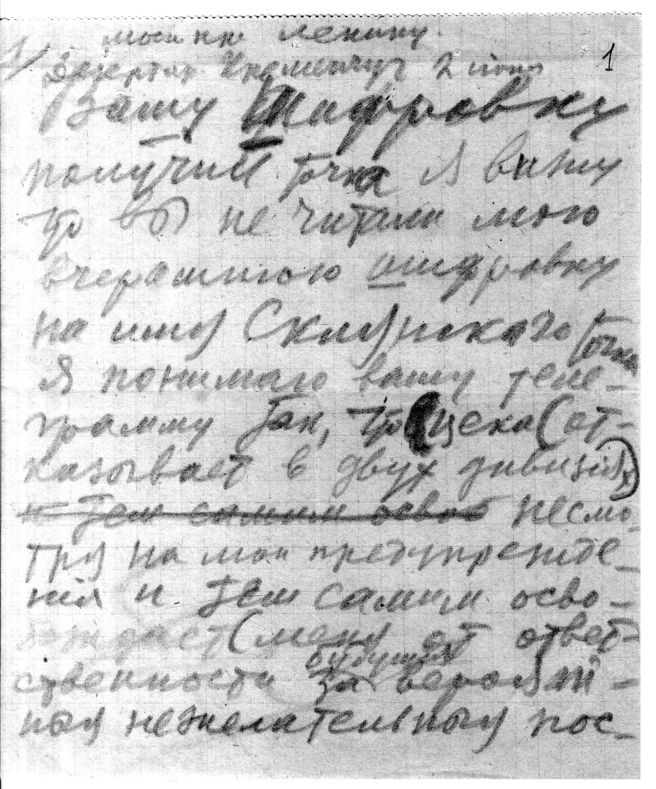 1/ Москва Ленину. 1
Кременчуг 2 июня
Вашу шифровку
получил точка Я вижу
что вы не читали мою
вчерашнюю шифровку
на имя Склянского точка
Я понимаю вашу теле-
грамму так, что цека (от-
казывает в двух дивизіях)
и тем самим освоб несмо-
тря на мои предупрежде-
нія и тем самим осво-
бождает (меня от ответ-
ственности будущия
за вероят-
ныя нежелательныя пос-